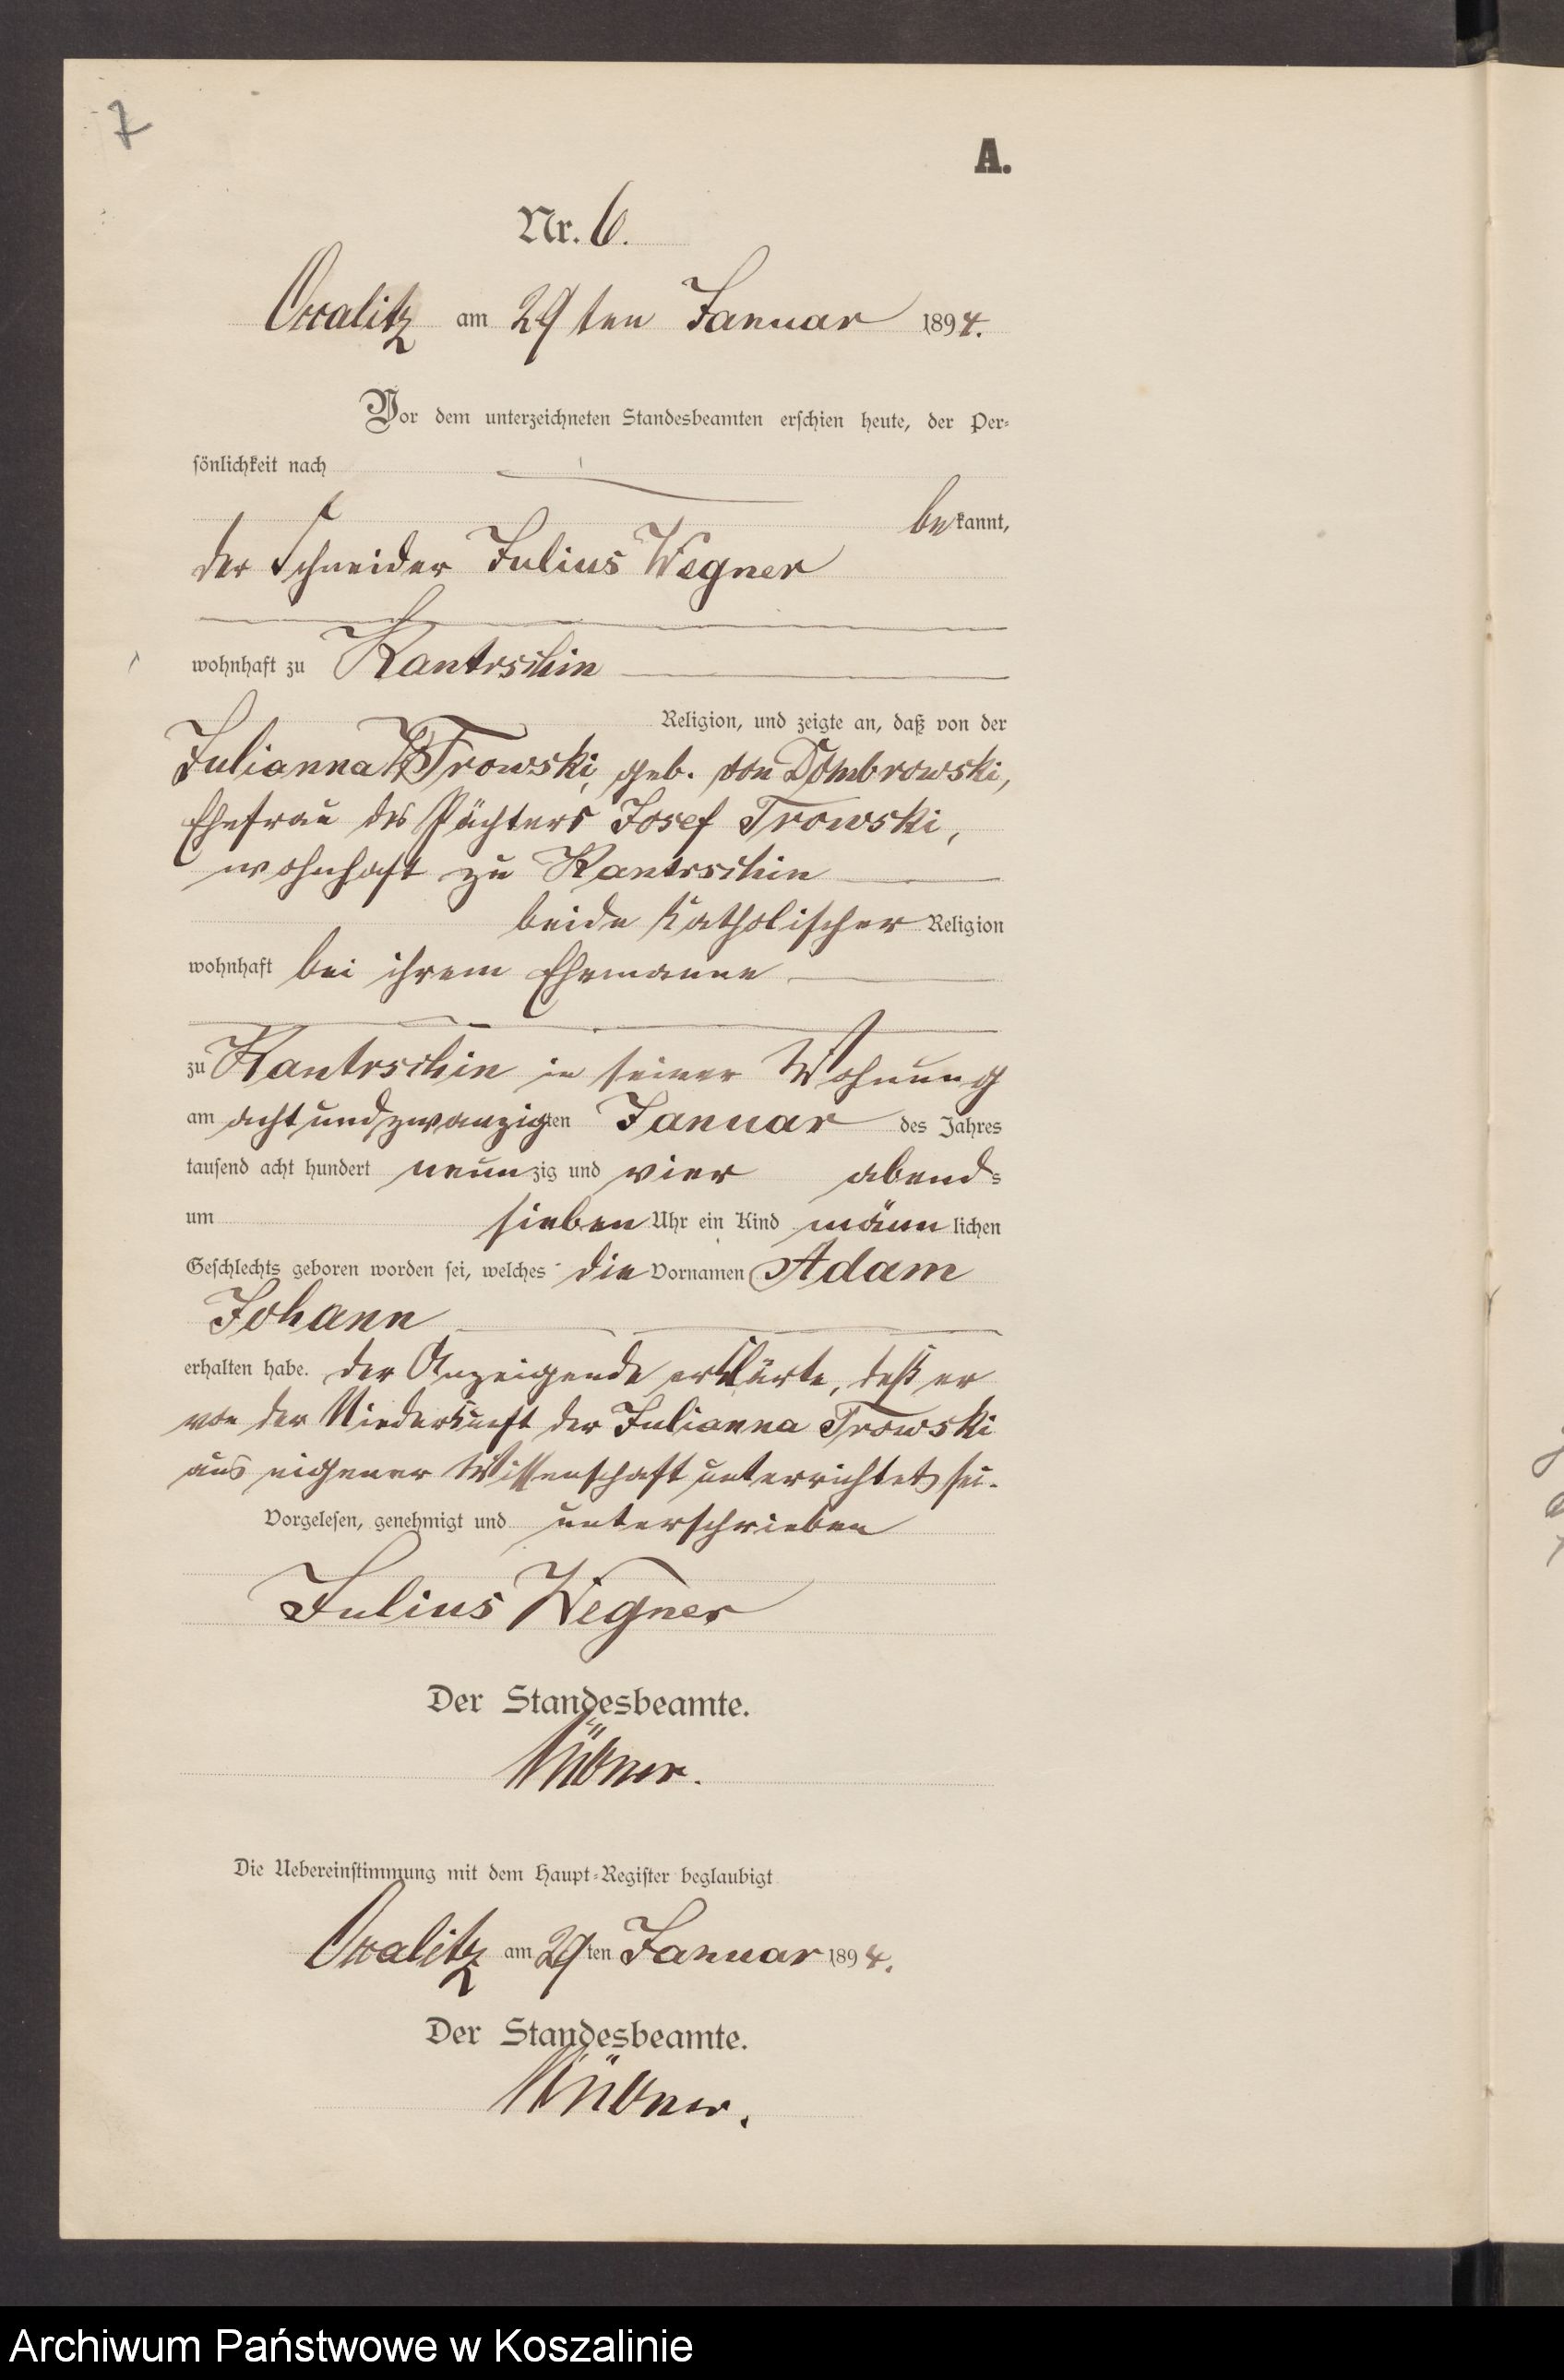 7
A.
Nr. 6.
Occalitz am 29 ten Januar 1894.
Vor dem unterzeichneten Standesbeamten erschien heute, der Per-
sönlichkeit nach
bekannt,
der Schneider Julius Wegner
wohnhaft zu Kantrschin
Religion, und zeigte an, daß von der
Julianna Trowski, geb. von Dombrowski,
Ehefrau des Pächters Josef Trowski,
wohnhaft zu Kantrschin
beide katholischer Religion
wohnhaft bei ihrem Ehemanne
zu Kantrschin in seiner Wohnung
am acht und zwanzigsten Januar des Jahres
tausend acht hundert neunzig und vier abends
um sieben Uhr ein Kind männlichen
Geschlechts geboren worden sei, welches die Vornamen Adam
Johann
erhalten habe. Der Anzeigende erklärte, daß er
von der Niederkunft der Julianna Trowski
aus eigener Wissenschaft unterrichtet sei.
Vorgelesen, genehmigt und unterschrieben
Julius Wegner
Der Standesbeamte.
Die Uebereinstimmung mit dem Haupt-Register beglaubigt
Occalitz am 29 ten Januar 1894.
Der Standesbeamte.
Archiwum Państwowe w Koszalinie